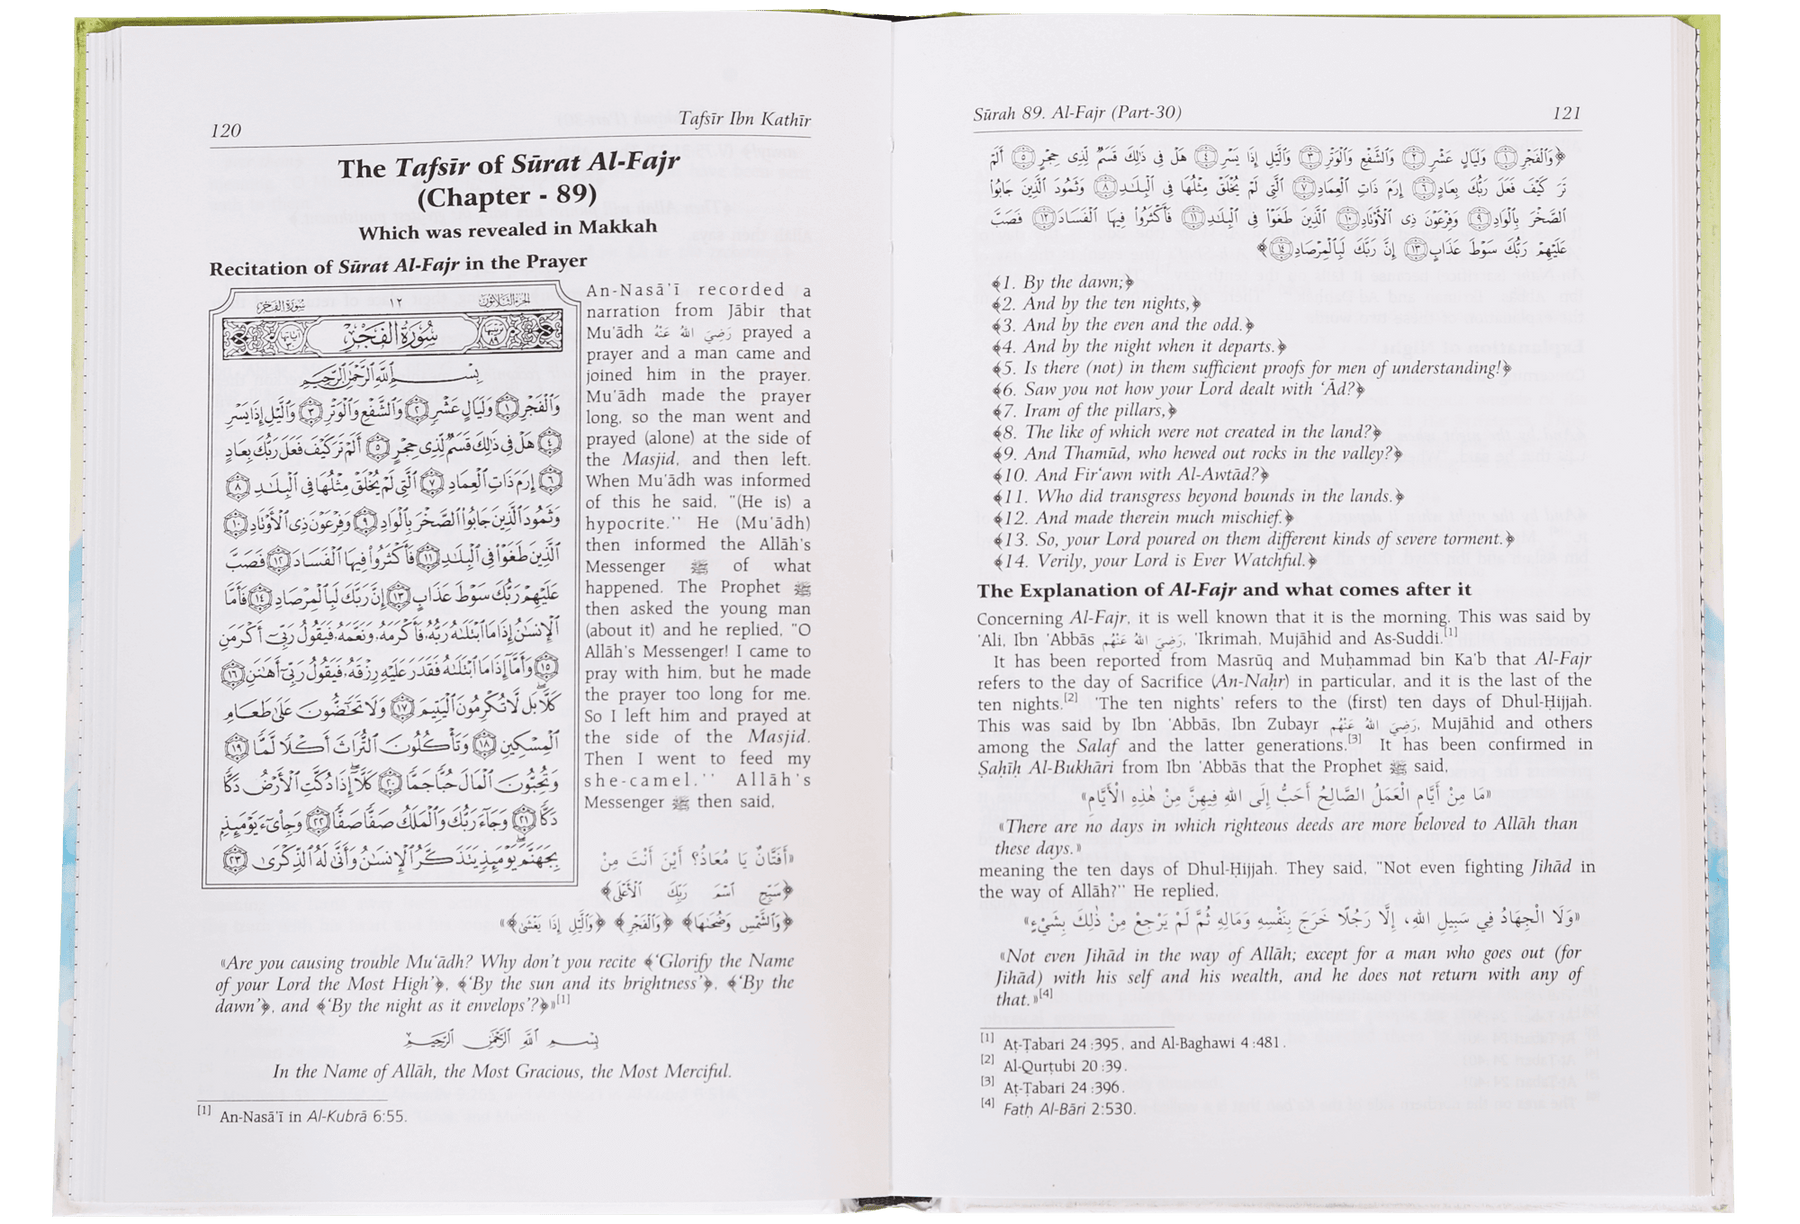 120
Tafsīr Ibn Kathīr
The Tafsīr of Sūrat Al-Fajr
(Chapter - 89)
Which was revealed in Makkah
Recitation of Sūrat Al-Fajr in the Prayer
سُورَةُ الفَجْرِ ١٢ الجزء الثلاثون
سُورَةُ الْفَجْرِ
بِسْمِ اللَّهِ الرَّحْمَٰنِ الرَّحِيمِ
وَالْفَجْرِ ١ وَلَيَالٍ عَشْرٍ ٢ وَالشَّفْعِ وَالْوَتْرِ ٣ وَاللَّيْلِ إِذَا يَسْرِ
٤ هَلْ فِي ذَٰلِكَ قَسَمٌ لِّذِي حِجْرٍ ٥ أَلَمْ تَرَ كَيْفَ فَعَلَ رَبُّكَ بِعَادٍ
٦ إِرَمَ ذَاتِ الْعِمَادِ ٧ الَّتِي لَمْ يُخْلَقْ مِثْلُهَا فِي الْبِلَٰدِ ٨
وَثَمُودَ الَّذِينَ جَابُوا الصَّخْرَ بِالْوَادِ ٩ وَفِرْعَوْنَ ذِي الْأَوْتَادِ ١٠
الَّذِينَ طَغَوْا فِي الْبِلَٰدِ ١١ فَأَكْثَرُوا فِيهَا الْفَسَادَ ١٢ فَصَبَّ
عَلَيْهِمْ رَبُّكَ سَوْطَ عَذَابٍ ١٣ إِنَّ رَبَّكَ لَبِالْمِرْصَادِ ١٤ فَأَمَّا
الْإِنسَٰنُ إِذَا مَا ابْتَلَىٰهُ رَبُّهُ فَأَكْرَمَهُ وَنَعَّمَهُ فَيَقُولُ رَبِّي أَكْرَمَنِ
١٥ وَأَمَّا إِذَا مَا ابْتَلَىٰهُ فَقَدَرَ عَلَيْهِ رِزْقَهُ فَيَقُولُ رَبِّي أَهَٰنَنِ ١٦
كَلَّا بَل لَّا تُكْرِمُونَ الْيَتِيمَ ١٧ وَلَا تَحَٰضُّونَ عَلَىٰ طَعَامِ
الْمِسْكِينِ ١٨ وَتَأْكُلُونَ التُّرَاثَ أَكْلًا لَّمًّا ١٩
وَتُحِبُّونَ الْمَالَ حُبًّا جَمًّا ٢٠ كَلَّا إِذَا دُكَّتِ الْأَرْضُ دَكًّا
دَكًّا ٢١ وَجَاءَ رَبُّكَ وَالْمَلَكُ صَفًّا صَفًّا ٢٢ وَجِاىءَ يَوْمَئِذٍ
بِجَهَنَّمَ يَوْمَئِذٍ يَتَذَكَّرُ الْإِنسَٰنُ وَأَنَّىٰ لَهُ الذِّكْرَىٰ ٢٣
An-Nasā'ī recorded a
narration from Jābir that
Mu'ādh رَضِيَ اللهُ عَنْهُ prayed a
prayer and a man came and
joined him in the prayer.
Mu'ādh made the prayer
long, so the man went and
prayed (alone) at the side of
the Masjid, and then left.
When Mu'ādh was informed
of this he said, "(He is) a
hypocrite." He (Mu'ādh)
then informed the Allāh's
Messenger ﷺ of what
happened. The Prophet ﷺ
then asked the young man
(about it) and he replied, "O
Allāh's Messenger! I came to
pray with him, but he made
the prayer too long for me.
So I left him and prayed at
the side of the Masjid.
Then I went to feed my
she-camel." Allāh's
Messenger ﷺ then said,
«أَفَتَّانٌ يَا مُعَاذُ؟ أَيْنَ أَنْتَ مِنْ
﴿سَبِّحِ اسْمَ رَبِّكَ الْأَعْلَى﴾
﴿وَالشَّمْسِ وَضُحَىٰهَا﴾ ﴿وَالْفَجْرِ﴾ ﴿وَاللَّيْلِ إِذَا يَغْشَىٰ﴾»
«Are you causing trouble Mu'ādh? Why don't you recite ﴾'Glorify the Name
of your Lord the Most High'﴿, ﴾'By the sun and its brightness'﴿, ﴾'By the
dawn'﴿, and ﴾'By the night as it envelops'?﴿»[1]
بِسْمِ اللَّهِ الرَّحْمَٰنِ الرَّحِيمِ
In the Name of Allāh, the Most Gracious, the Most Merciful.
[1] An-Nasā'ī in Al-Kubrā 6:55.
Sūrah 89. Al-Fajr (Part-30)
121
﴿وَالْفَجْرِ ١ وَلَيَالٍ عَشْرٍ ٢ وَالشَّفْعِ وَالْوَتْرِ ٣ وَاللَّيْلِ إِذَا يَسْرِ ٤ هَلْ فِي ذَٰلِكَ قَسَمٌ لِّذِي حِجْرٍ ٥ أَلَمْ
تَرَ كَيْفَ فَعَلَ رَبُّكَ بِعَادٍ ٦ إِرَمَ ذَاتِ الْعِمَادِ ٧ الَّتِي لَمْ يُخْلَقْ مِثْلُهَا فِي الْبِلَٰدِ ٨ وَثَمُودَ الَّذِينَ جَابُوا
الصَّخْرَ بِالْوَادِ ٩ وَفِرْعَوْنَ ذِي الْأَوْتَادِ ١٠ الَّذِينَ طَغَوْا فِي الْبِلَٰدِ ١١ فَأَكْثَرُوا فِيهَا الْفَسَادَ ١٢ فَصَبَّ
عَلَيْهِمْ رَبُّكَ سَوْطَ عَذَابٍ ١٣ إِنَّ رَبَّكَ لَبِالْمِرْصَادِ ١٤﴾
﴾1. By the dawn;﴿
﴾2. And by the ten nights,﴿
﴾3. And by the even and the odd.﴿
﴾4. And by the night when it departs.﴿
﴾5. Is there (not) in them sufficient proofs for men of understanding!﴿
﴾6. Saw you not how your Lord dealt with 'Ād?﴿
﴾7. Iram of the pillars,﴿
﴾8. The like of which were not created in the land?﴿
﴾9. And Thamūd, who hewed out rocks in the valley?﴿
﴾10. And Fir'awn with Al-Awtād?﴿
﴾11. Who did transgress beyond bounds in the lands.﴿
﴾12. And made therein much mischief.﴿
﴾13. So, your Lord poured on them different kinds of severe torment.﴿
﴾14. Verily, your Lord is Ever Watchful.﴿
The Explanation of Al-Fajr and what comes after it
Concerning Al-Fajr, it is well known that it is the morning. This was said by
'Ali, Ibn 'Abbās رَضِيَ اللهُ عَنْهُم, 'Ikrimah, Mujāhid and As-Suddi.[1]
It has been reported from Masrūq and Muḥammad bin Ka'b that Al-Fajr
refers to the day of Sacrifice (An-Naḥr) in particular, and it is the last of the
ten nights.[2] 'The ten nights' refers to the (first) ten days of Dhul-Ḥijjah.
This was said by Ibn 'Abbās, Ibn Zubayr رَضِيَ اللهُ عَنْهُم, Mujāhid and others
among the Salaf and the latter generations.[3] It has been confirmed in
Ṣaḥīḥ Al-Bukhāri from Ibn 'Abbās that the Prophet ﷺ said,
«مَا مِنْ أَيَّامٍ الْعَمَلُ الصَّالِحُ أَحَبُّ إِلَى اللهِ فِيهِنَّ مِنْ هٰذِهِ الْأَيَّامِ»
«There are no days in which righteous deeds are more beloved to Allāh than
these days.»
meaning the ten days of Dhul-Ḥijjah. They said, "Not even fighting Jihād in
the way of Allāh?" He replied,
«وَلَا الْجِهَادُ فِي سَبِيلِ اللهِ، إِلَّا رَجُلًا خَرَجَ بِنَفْسِهِ وَمَالِهِ ثُمَّ لَمْ يَرْجِعْ مِنْ ذٰلِكَ بِشَيْءٍ»
«Not even Jihād in the way of Allāh; except for a man who goes out (for
Jihād) with his self and his wealth, and he does not return with any of
that.»[4]
[1] Aṭ-Ṭabari 24:395, and Al-Baghawi 4:481.
[2] Al-Qurṭubi 20:39.
[3] Aṭ-Ṭabari 24:396.
[4] Fatḥ Al-Bāri 2:530.